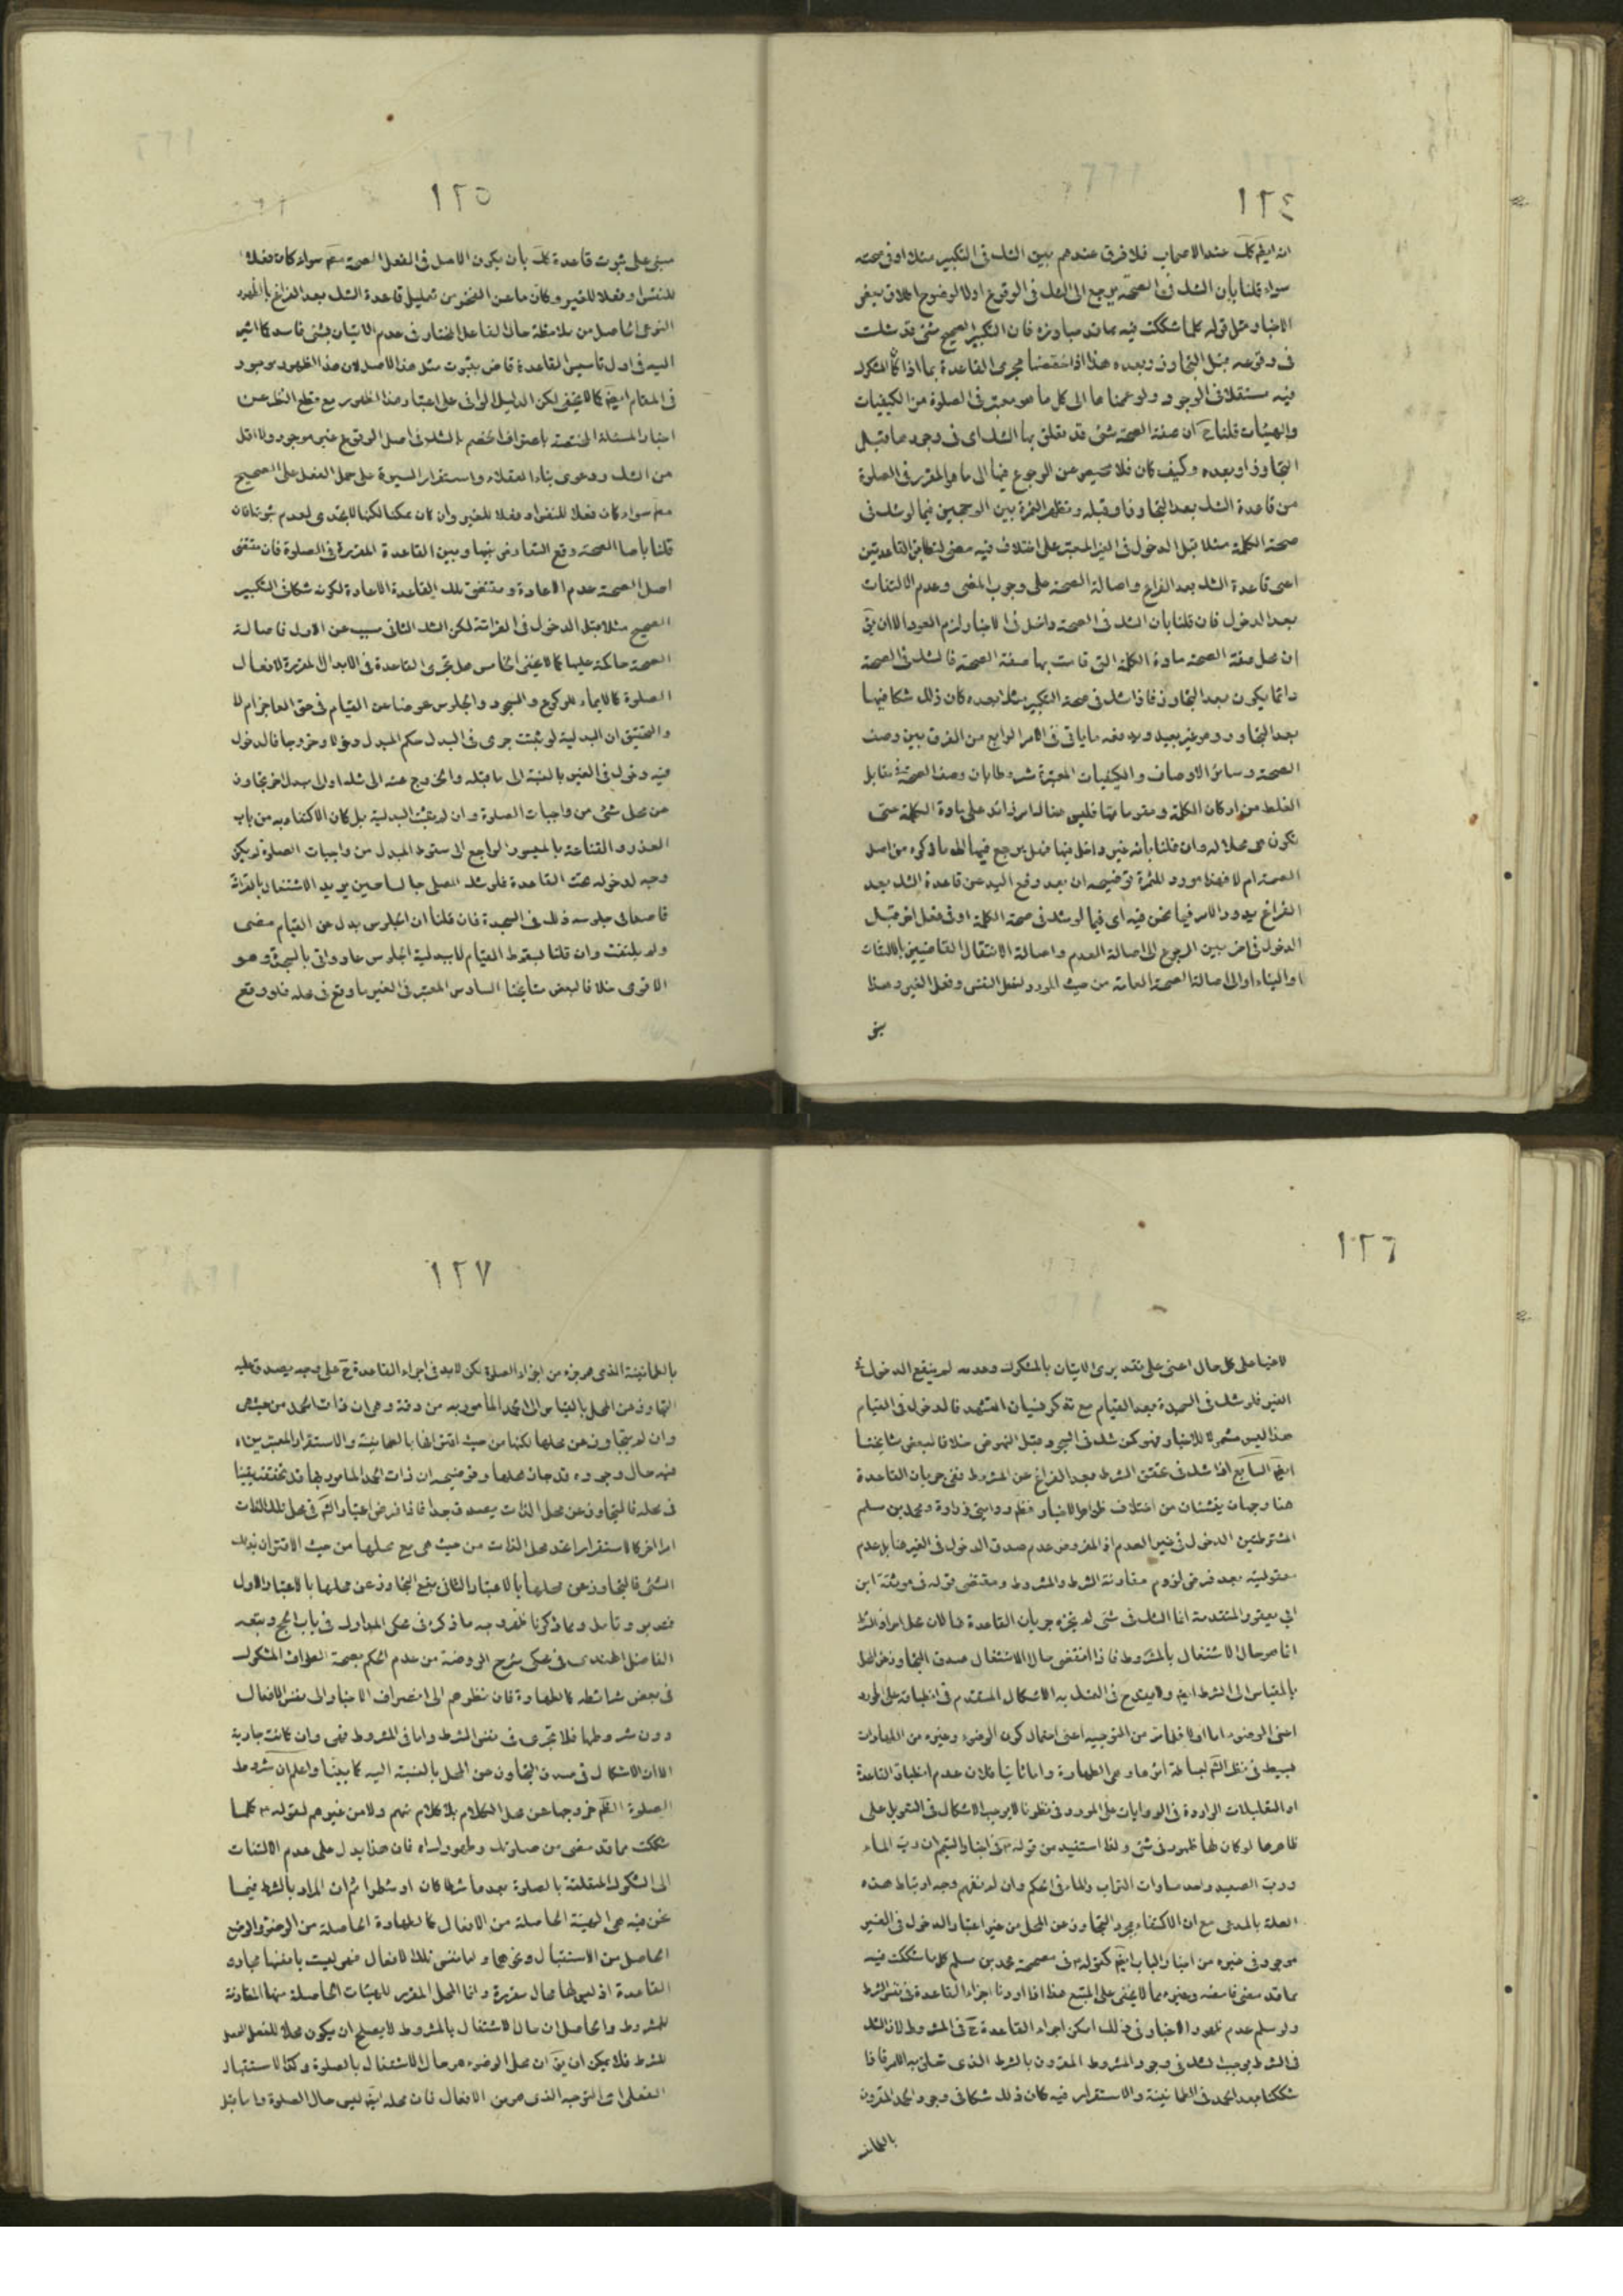 ١٢٤
انه ايضا كك عند الاصحاب فلا فرق عندهم بين الشك فى التكبير مثلا او فى صحته
سواء قلنا بان الشك فى الصحة يرجع الى الشك فى الوقوع اولا لوضوح اطلاق بعض
الاخبار مثل قوله كلما شككت فيه مما قد مضى فان التكبير الصحيح شئ قد شككت
فى وقوعه قبل التجاوز وبعده هذا اذا خصصنا مجرى القاعدة بما اذا كان المشكوك
فيه مستقلا فى الوجود ولو عممناها الى كل ما هو معتبر فى الصلوة من الكيفيات
والهيئات قلنا ح ان صفة الصحة شئ قد تعلق بها الشك اى فى وجودها قبل
التجاوز او بعده وكيف كان فلا محيص عن الرجوع فيها الى ما هو المقرر فى الصلوة
من قاعدة الشك بعد التجاوز او قبله وتظهر الثمرة بين الوجهين فيما لو شك فى
صحة الكلمة مثلا قبل الدخول فى الغير المعتبر على اختلاف فيه معنى لتطابق القاعدتين
اعنى قاعدة الشك بعد الفراغ واصالة الصحة على وجوب المضى وعدم الالتفات
بعد الدخول فان قلنا بان الشك فى الصحة داخل فى الاخبار لزم العود الا ان يق
ان محل صفة الصحة مادة الكلمة التى قامت بها صفة الصحة فالشك فى الصحة
دائما يكون بعد التجاوز فاذا شك فى صحة التكبير مثلا بعده كان ذلك شكا فيها
بعد التجاوز وهو غير بعيد ويدفعه ما ياتى فى الامر الرابع من الفرق بين وصف
الصحة وساير الاوصاف والكيفيات المعتبرة شروطا بان وصف الصحة فى مقابل
الغلط من اركان الكلمة ومقوماتها فليس هنا امر زائد على مادة الكلمة حتى
تكون هى محلا له وان قلنا بانه غير داخل فيها فهل يرجع فيها الى ما ذكره من اصل
الصحة ام لا فهذا مورد الثمرة توضيحه ان بعد رفع اليد عن قاعدة الشك بعد
الفراغ يدور الامر فيما نحن فيه اى فيما لو شك فى صحة الكلمة او فى فعل اخر قبل
الدخول فى اخر بين الرجوع الى اصالة العدم واصالة الاشتغال القاضيين بالالتفات
او البناء او الى اصالة الصحة العامة من حيث المورد لفعل النفس وفعل الغير وهذا
١٢٥
مبنى على ثبوت قاعدة كك بأن يكون الاصل فى الفعل الصحة معه سواء كان فعلا
للنفس او فعلا للغير وكان ما عن الفخر من تعليل قاعدة الشك بعد الفراغ بالظهور
النوعى الحاصل من ملاحظة حال الفاعل المختار فى عدم الاتيان بشئ فاسد كما اشير
اليه فى اول تاسيس القاعدة قاض بثبوت مثل هذا الاصل لان هذا الظهور موجود
فى المقام ايضا كما لا يخفى لكن الدليل الوافى على اعتبار هذا الظهور مع قطع النظر عن
اخبار المسئلة المختصة باعتراف الخصم بالشك فى اصل الوقوع غير موجود ولا اقل
من الشك ودعوى بناء العقلاء واستقرار السيرة على حمل الفعل على الصحيح
معه سواء كان فعلا للنفس او فعلا للغير وان كان ممكنا لكنها لا يجدى لعدم ثبوتها فان
قلنا باصالة الصحة وقع التعارض بينها وبين القاعدة المقررة فى الصلوة فان مقتضى
اصل الصحة عدم الاعادة ومقتضى تلك القاعدة الاعادة لكونه شكا فى التكبير
الصحيح مثلا قبل الدخول فى القرائة لكن الشك الثانى سبب عن الاول فاصالة
الصحة حاكمة عليها كما لا يخفى الخامس هل تجرى القاعدة فى الابدال المقررة لافعال
الصلوة كالايماء للركوع والسجود والجلوس عوضا عن القيام فى حق العاجز ام لا
والتحقيق ان البدلية لو ثبتت جرى فى البدل حكم المبدل دخولا وخروجا فالدخول
فيه دخول فى الغير بالنسبة الى ما قبله والخروج عنه الى مثله او الى مبدل اخر تجاوز
عن محل شئ من واجبات الصلوة وان لم يثبت البدلية بل كان الاكتفاء به من باب
العذر والقناعة بالميسور الراجع الى سقوط المبدل من واجبات الصلوة لم يكن
وجه لدخوله تحت القاعدة فلو شك المصلى جالسا حين يريد الاشتغال بالقرائة
قاصدا فى جلوسه ذلك فى السجدة فان قلنا ان الجلوس بدل عن القيام مضى
ولم يلتفت وان قلنا بسقوط القيام لا ببدلية الجلوس عاد واتى بالسجدة وهو
الاقوى خلافا لبعض مشايخنا السادس المعتبر فى الغير ما وقع فى محله فلو وقع
١٢٦
لاغيا على كل حال اعنى على تقديرى الاتيان بالمشكوك وعدمه لم ينفع الدخول فى
الغير فلو شك فى السجدة بعد القيام مع تذكر نسيان التشهد فالدخول فى القيام
هذا ليس مشمولا للاخبار فهو كمن شك فى السجود قبل النهوض خلافا لبعض مشايخنا
ايضا السابع اذا شك فى تحقق الشرط بعد الفراغ عن المشروط ففى جريان القاعدة
هنا وجهان ينشئان من اختلاف ظواهر الاخبار فظهر روايتى زرارة ومحمد بن مسلم
المشترطتين الدخول فى الغير العدم اذ المفروض عدم صدق الدخول فى الغير هنا بل عدم
معقوليته بعد فرض لزوم مقارنة الشرط والمشروط ومقتضى قوله فى موثقة ابن
ابى يعفور المتقدمة انما الشك فى شئ لم تجزه جريان القاعدة هنا لان محل احراز الشرط
انما هو حال الاشتغال بالمشروط فاذا انقضى حال الاشتغال صدق التجاوز عن المحل
بالقياس الى الشرط ايضا ولا يقدح فى التمسك به الاشكال المتقدم فى انطباقه على المورد
اعنى الوضوء اما اولا فلما مر من التوجيه اعنى احتمال كون الوضوء وغيره من الطهارات
بسيطا فى نظر الشارع لبساطة اثرها وهى الطهارة واما ثانيا فلان عدم انطباق القاعدة
او التعليلات الواردة فى الروايات على المورد فى نظرنا لا يوجب الاشكال فى التعويل على
ظاهرها لو كان لها ظهور فى شئ ولذا استفيد من قوله فى اخبار التيمم ان رب الماء
ورب الصعيد واحد مساوات التراب والماء فى الحكم وان لم نفهم وجه ارتباط هذه
العلة بالمدعى مع ان الاكتفاء بمجرد التجاوز عن المحل من غير اعتبار الدخول فى الغير
موجود فى غيره من اخبار الباب ايضا كقوله فى صحيحة محمد بن مسلم كلما شككت فيه
مما قد مضى فامضه وغيره مما لا يخفى على المتتبع هذا اذا اردنا اجراء القاعدة فى نفس الشرط
ولو سلم عدم ظهور الاخبار فى ذلك امكن اجراء القاعدة ح فى المشروط لان الشك
فى الشرط يوجب الشك فى وجود المشروط المقرون بالشرط الذى تعلق به الامر فاذا
شككنا بعد الحمد فى الطمانينة والاستقرار فيه كان ذلك شكا فى وجود الحمد المقرون
١٢٧
بالطمانينة الذى هو جزء من اجزاء الصلوة لكن لا بد فى اجراء القاعدة ح على وجه يصدق عليه
التجاوز عن المحل بالقياس الى الحمد المأمور به من دقة وهى ان ذات الحمد من حيث هى
وان لم يتجاوز عن محلها لكنها من حيث اقترانها بالطمانينة والاستقرار المعتبرين
فيه حال وجوده قد جاز محلها وتوضيحه ان ذات الحمد المامور بها قد تحققت يقينا
فى محله فالتجاوز عن محل الذات يصدق جدا فاذا فرض اعتبار الشارع فى محل تلك الذات
امرا اخر كالاستقرار اعتد محل الذات من حيث هى مع محلها من حيث الاقتران بذلك
الشئ فالتجاوز عن محلها بالاعتبار الثانى ينفع التجاوز عن محلها بالاعتبار الاول
فتدبر وتامل ومما ذكرنا ظهر وجه ما ذكره فى محكى المدارك فى باب الحج وتبعه
الفاضل الهندى فى محكى شرح الروضة من عدم الحكم بصحة الطواف المشكوك
فى بعض شرائطه كالطهارة فان نظرهم الى انصراف الاخبار الى نفس الافعال
دون شروطها فلا تجرى فى نفس الشرط واما فى المشروط فهى وان كانت جارية
الا ان الاشكال فى صدق التجاوز عن المحل بالنسبة اليه كما بينا واعلم ان شروط
الصلوة الظاهر خروجها عن محل الكلام بلا كلام منهم ولا من غيرهم لقوله كلما
شككت مما قد مضى من صلوتك وطهورك اه فان هذا يدل على عدم الالتفات
الى الشكوك المتعلقة بالصلوة بعدما شطا كان او شطرا ثم ان المراد بالشرط فيما
نحن فيه هى الهيئة الحاصلة من الافعال كالطهارة الحاصلة من الوضوء والوضع
الحاصل من الاستقبال ونحوهما واما نفس تلك الافعال فهى ليست بانفسها مجارى
القاعدة اذ ليس لها محال مقررة وانما المحل المقرر للهيئات الحاصلة منها المقارنة
للمشروط والحاصل ان حال الاشتغال بالمشروط لا يصلح ان يكون محلا للفعل المحصل
للشرط فلا يمكن ان يق ان محل الوضوء هو حال الاشتغال بالصلوة وكذا الاستقبال
الفعلى اى التوجه الذى هو من الافعال فان محله ايضا ليس حال الصلوة واما قبل